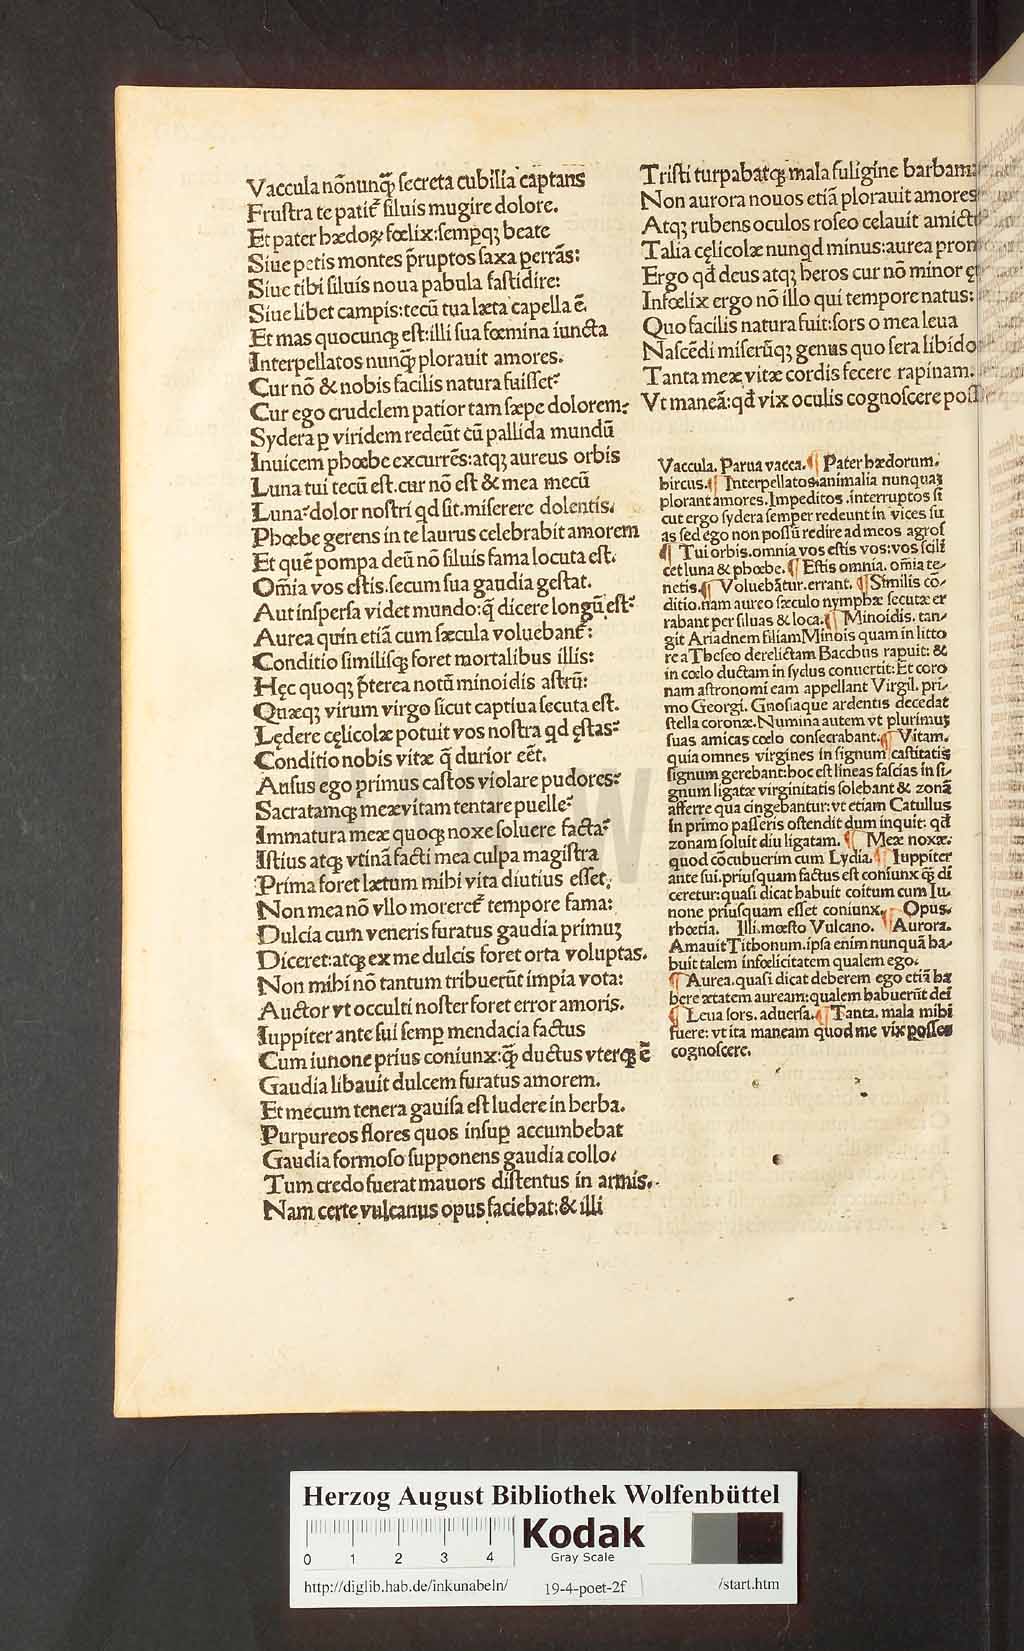 Vaccula nōnunq̄ȝ secreta cubilia captans
Frustra te patit᷑ siluis mugire dolore.
Et pater hædoꝝ fœlix:sempqȝ beate
Siue petis montes p̄ruptos saxa perrās:
Siue tibi siluis noua pabula fastidire:
Siue libet campis:tecū tua læta capella ē.
Et mas quocunqȝ est:illi sua fœmina iuncta
Interpellatos nunq̄ȝ plorauit amores.
Cur nō & nobis facilis natura fuisset?
Cur ego crudelem patior tam sæpe dolorem?
Sydera ꝑ viridem redeūt cū pallida mundū
Inuicem phœbe excurrēs:atqȝ aureus orbis
Luna tui tecū est.cur nō est & mea mecū
Luna?dolor nostri qd sit.miserere dolentis.
Phœbe gerens in te laurus celebrabit amorem
Et quē pompa deū nō siluis fama locuta est.
Om̄ia vos estis.secum sua gaudia gestat.
Aut inspersa videt mundo:q̄ dicere longū est?
Aurea quin etiā cum sæcula voluebant᷑:
Conditio similisqȝ foret mortalibus illis:
Hęc quoqȝ p̄terea notū minoidis astrū:
Quæqȝ virum virgo sicut captiua secuta est.
Lędere cęlicolæ potuit vos nostra qd ęstas?
Conditio nobis vitæ q̄ durior eēt.
Ausus ego primus castos violare pudores?
Sacratamqȝ meæ vitam tentare puelle?
Immatura meæ quoqȝ noxe soluere facta?
Istius atqȝ vtinā facti mea culpa magistra
Prima foret lætum mihi vita diutius esset.
Non mea nō vllo moreret᷑ tempore fama:
Dulcia cum veneris furatus gaudia primuȝ
Diceret:atqȝ ex me dulcis foret orta voluptas.
Non mihi nō tantum tribuerūt impia vota:
Auctor vt occulti noster foret error amoris.
Iuppiter ante sui semꝑ mendacia factus
Cum iunone prius coniunx:q̄ȝ ductus vterqȝ ē
Gaudia libauit dulcem furatus amorem.
Et mecum tenera gauisa est ludere in herba.
Purpureos flores quos insuꝑ accumbebat
Gaudia formoso supponens gaudia collo.
Tum credo fuerat mauors distentus in armis.
Nam certe vulcanus opus faciebat:& illi
Tristi turpabatqȝ mala fuligine barbam:
Non aurora nouos etiā plorauit amores
Atqȝ rubens oculos roseo celauit amictu
Talia cęlicolæ nunqd minus:aurea prom
Ergo qd deus atqȝ heros cur nō minor ęt
Infœlix ergo nō illo qui tempore natus:
Quo facilis natura fuit:sors o mea leua
Nascēdi miserūqȝ genus quo sera libido
Tanta meæ vitæ cordis fecere rapinam.
Vt maneā:qd vix oculis cognoscere poss
Vaccula. Parua vacca.¶ Pater hædorum.
hircus.¶ Interpellatos.animalia nunquaȝ
plorant amores. Impeditos .interruptos si
cut ergo sydera semper redeunt in vices su
as sed ego non possū redire ad meos agros
¶ Tui orbis.omnia vos estis vos:vos scili
cet luna & phœbe. ¶ Estis omnia. om̄ia te-
netis.¶ Voluebātur.errant. ¶ Similis cō-
ditio.nam aureo sæculo nymphæ secutæ er
rabant per siluas & loca.¶ Minoidis. tan-
git Ariadnem filiam Minois quam in litto
re a Theseo derelictam Bacchus rapuit: &
in cœlo ductam in sydus conuertit: Et coro
nam astronomi eam appellant Virgil. pri-
mo Georgi. Gnosiaque ardentis decedat
stella coronæ. Numina autem vt plurimuȝ
suas amicas cœlo consecrabant.¶ Vitam.
quia omnes virgines in signum castitatis
signum gerebant:hoc est lineas fascias in si-
gnum ligatæ virginitatis solebant & zonā
afferre qua cingebantur:vt etiam Catullus
in primo passeris ostendit dum inquit: qd
zonam soluit diu ligatam. ¶ Meæ noxæ.
quod cōcubuerim cum Lydia. ¶ Iuppiter
ante sui.priusquam factus est coniunx qȝ di
ceretur:quasi dicat habuit coitum cum Iu-
none priusquam esset coniunx. ¶ Opus.
rhœtia. Illi.mœsto Vulcano. ¶ Aurora.
Amauit Tithonum.ipsa enim nunquā ha-
buit talem infœlicitatem qualem ego.
¶ Aurea.quasi dicat deberem ego etiā ha
bere ætatem auream:qualem habuerūt dei
¶ Leua sors. aduersa.¶ Tanta. mala mihi
fuere: vt ita maneam quod me vix posses
cognoscere.
HAB-W
Herzog August Bibliothek Wolfenbüttel
0 1 2 3 4
Kodak
Gray Scale
http://diglib.hab.de/inkunabeln/ 19-4-poet-2f /start.htm